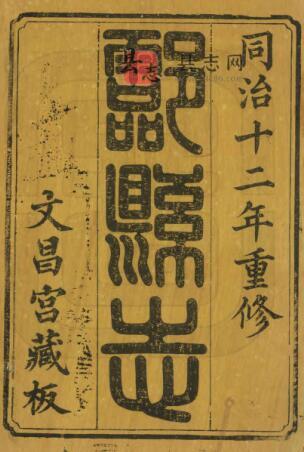 同治十二年重修
酃縣志
文昌宮藏板
县志 县志网